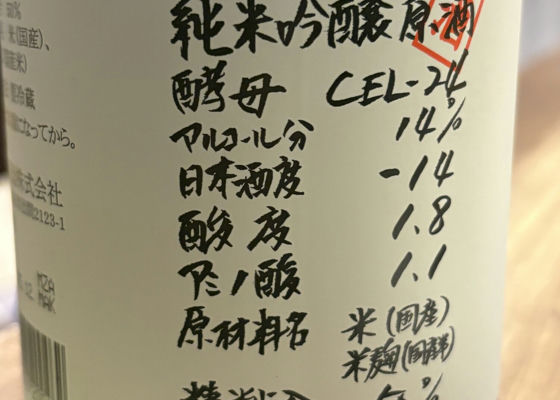 50%
米(国産)、
国産米)
冷蔵
になってから。
株式会社
2123-1
MZA
MAK
純米吟醸原酒
酵母 CEL-24
アルコール分 14%
日本酒度 -14
酸度 1.8
アミノ酸 1.1
原材料名 米(国産)
米麹(国産米)